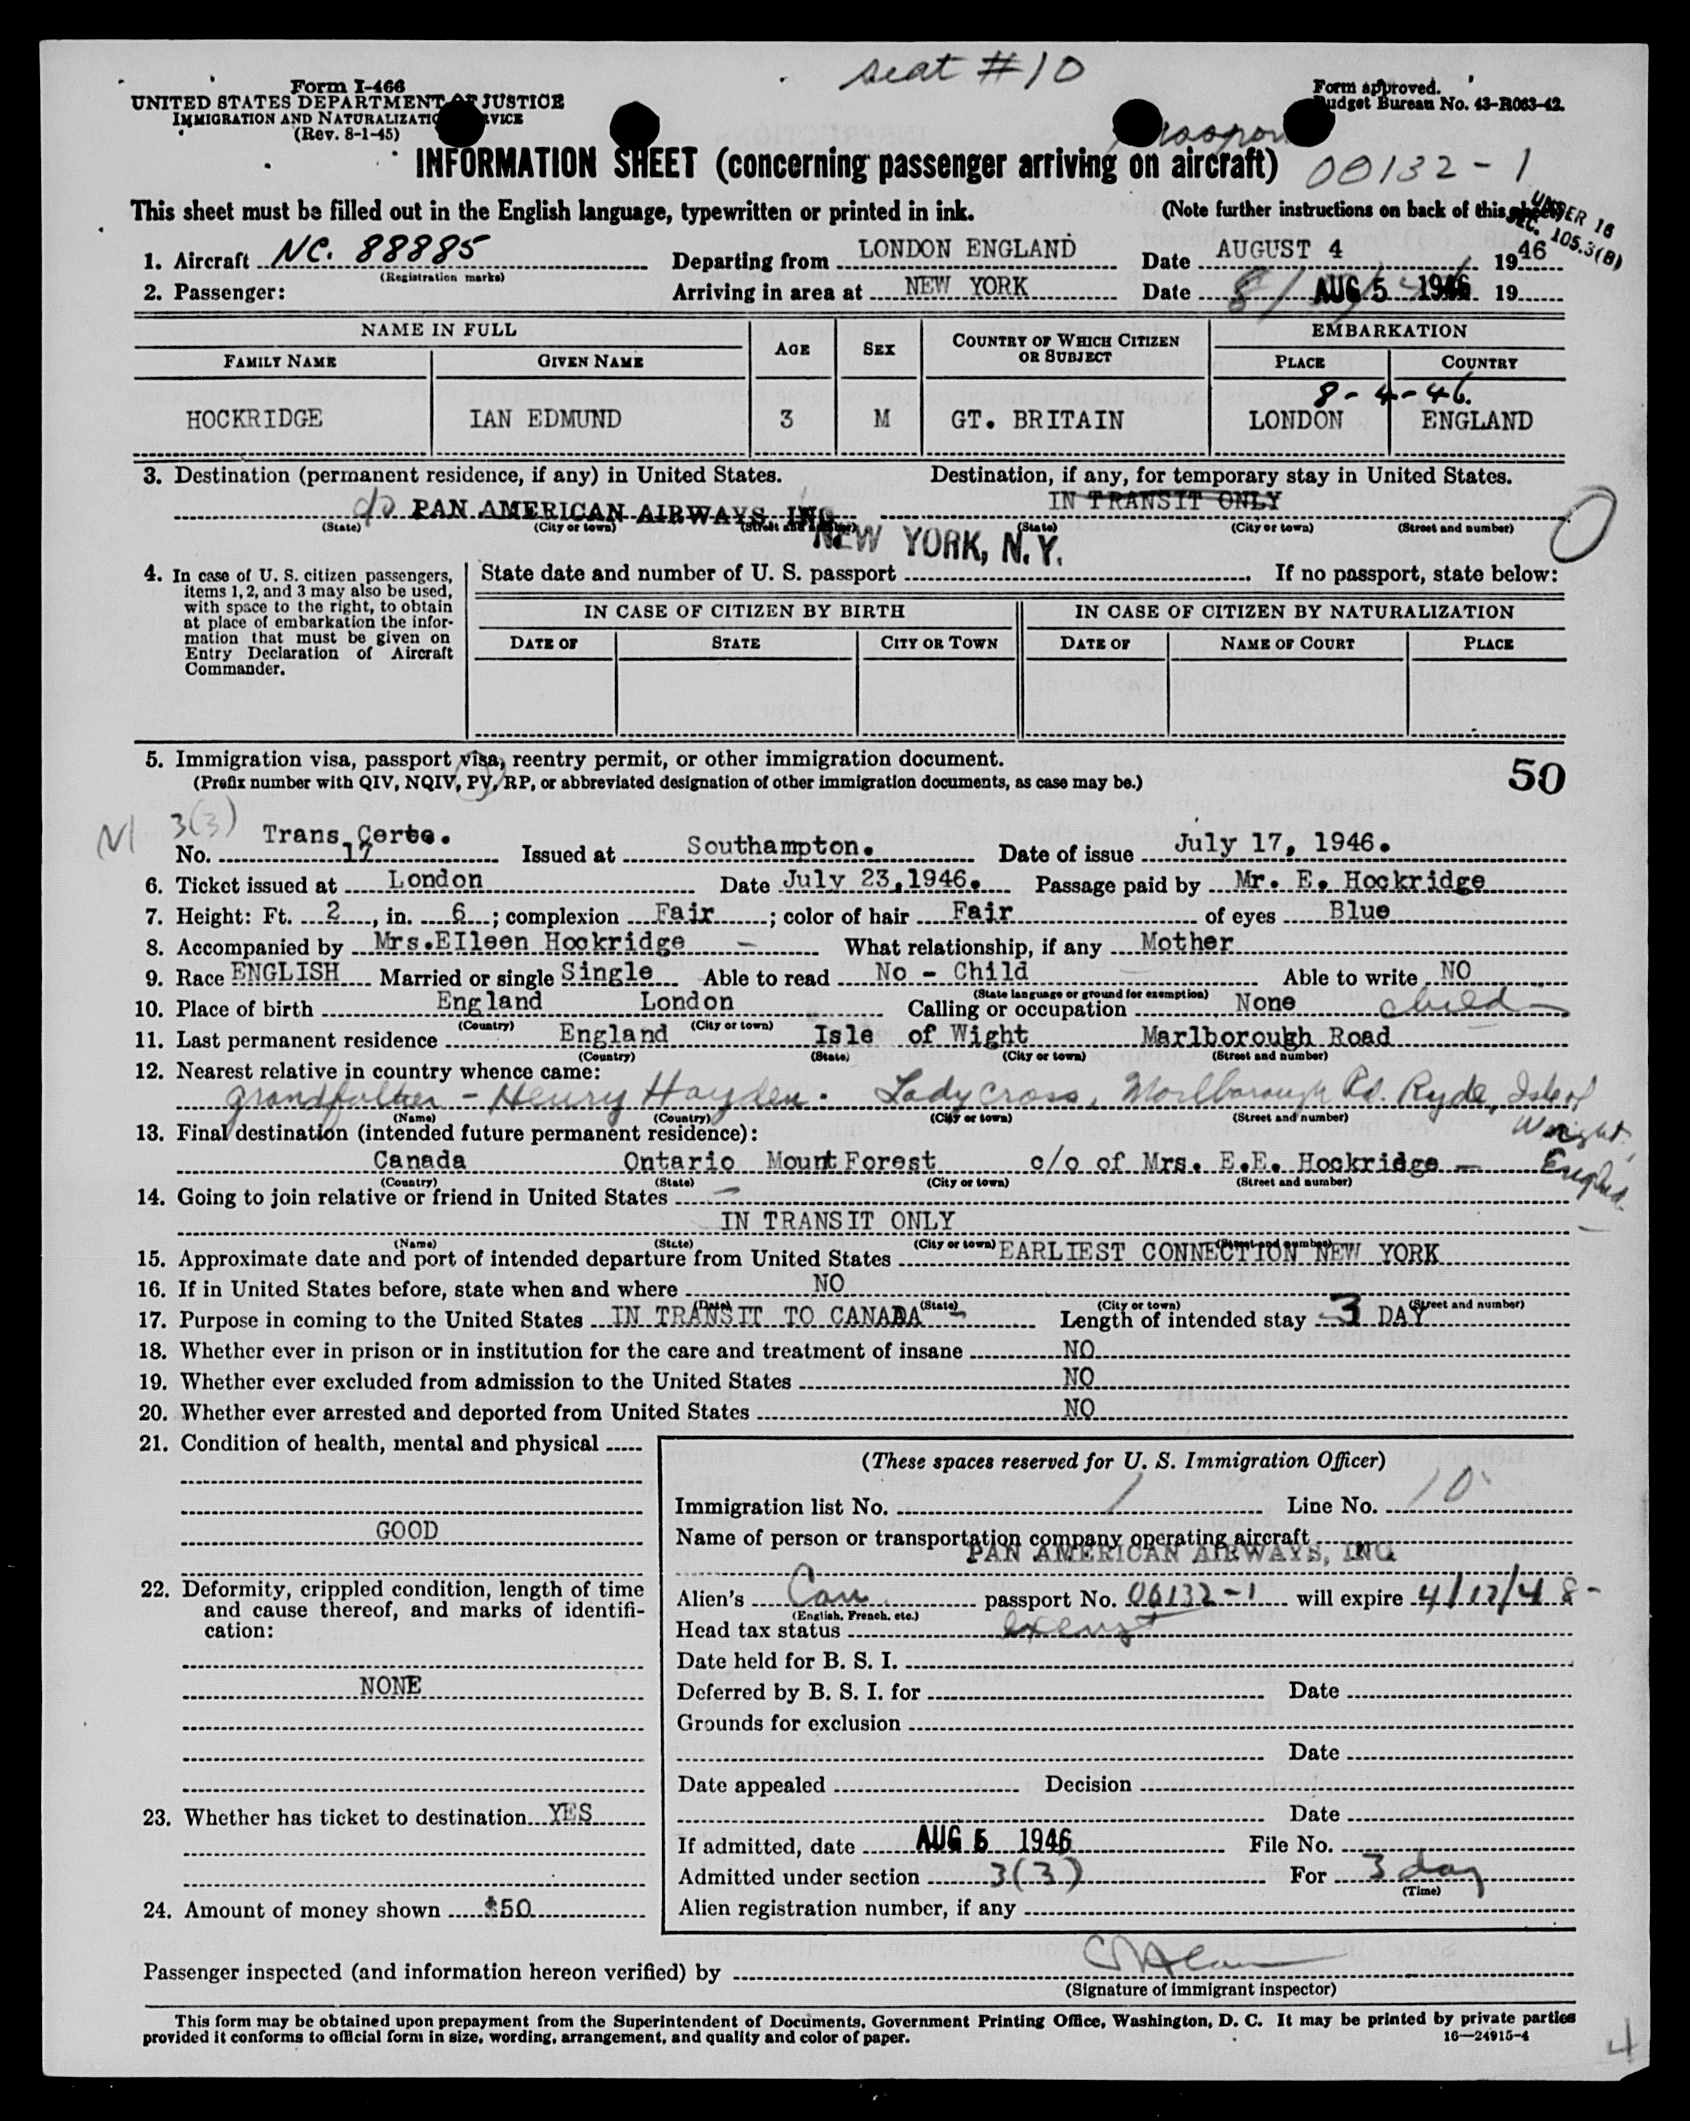 seat #10
Form I-466
UNITED STATES DEPARTMENT OF JUSTICE
IMMIGRATION AND NATURALIZATION SERVICE
(Rev. 8-1-45)
Form approved.
Budget Bureau No. 43-R063-42.
passport
INFORMATION SHEET (concerning passenger arriving on aircraft) 00132-1
This sheet must be filled out in the English language, typewritten or printed in ink. (Note further instructions on back of this sheet)
UNDER 16
SEC. 105.3(B)
1. Aircraft NC. 88885 Departing from LONDON ENGLAND Date AUGUST 4 1946
(Registration marks)
2. Passenger: Arriving in area at NEW YORK Date AUG 5 1946 19
NAME IN FULL AGE SEX COUNTRY OF WHICH CITIZEN OR SUBJECT EMBARKATION
FAMILY NAME GIVEN NAME PLACE COUNTRY
8-4-46.
HOCKRIDGE IAN EDMUND 3 M GT. BRITAIN LONDON ENGLAND
3. Destination (permanent residence, if any) in United States. Destination, if any, for temporary stay in United States.
c/o PAN AMERICAN AIRWAYS, INC. IN TRANSIT ONLY
(State) (City or town) (Street and number) (State) (City or town) (Street and number)
NEW YORK, N.Y.
0
4. In case of U. S. citizen passengers, items 1, 2, and 3 may also be used, with space to the right, to obtain at place of embarkation the information that must be given on Entry Declaration of Aircraft Commander.
State date and number of U. S. passport . If no passport, state below:
IN CASE OF CITIZEN BY BIRTH IN CASE OF CITIZEN BY NATURALIZATION
DATE OF STATE CITY OR TOWN DATE OF NAME OF COURT PLACE
5. Immigration visa, passport visa, reentry permit, or other immigration document.
(Prefix number with QIV, NQIV, PV, RP, or abbreviated designation of other immigration documents, as case may be.)
50
3(3)
Trans Certe.
No. 17 Issued at Southampton. Date of issue July 17, 1946.
6. Ticket issued at London Date July 23,1946. Passage paid by Mr. E. Hockridge
7. Height: Ft. 2, in. 6; complexion Fair; color of hair Fair of eyes Blue
8. Accompanied by Mrs.EIleen Hockridge - What relationship, if any Mother
9. Race ENGLISH Married or single Single Able to read No - Child Able to write NO
(State language or ground for exemption)
10. Place of birth England London Calling or occupation None child
(Country) (City or town)
11. Last permanent residence England Isle of Wight Marlborough Road
(Country) (State) (City or town) (Street and number)
12. Nearest relative in country whence came:
grandfather - Henry Hayden. Ladycross, Marlborough Rd. Ryde, Isle of Wight, England
(Name) (Country) (City or town) (Street and number)
13. Final destination (intended future permanent residence):
Canada Ontario Mount Forest c/o of Mrs. E.E. Hockridge -
(Country) (State) (City or town) (Street and number)
14. Going to join relative or friend in United States -
IN TRANSIT ONLY
(Name) (State) (City or town) (Street and number)
15. Approximate date and port of intended departure from United States EARLIEST CONNECTION NEW YORK
16. If in United States before, state when and where NO
(Date) (State) (City or town) (Street and number)
17. Purpose in coming to the United States IN TRANSIT TO CANADA - Length of intended stay 3 DAY
18. Whether ever in prison or in institution for the care and treatment of insane NO
19. Whether ever excluded from admission to the United States NO
20. Whether ever arrested and deported from United States NO
21. Condition of health, mental and physical
GOOD
22. Deformity, crippled condition, length of time and cause thereof, and marks of identification:
NONE
23. Whether has ticket to destination YES
24. Amount of money shown $50
(These spaces reserved for U. S. Immigration Officer)
Immigration list No. 1 Line No. 10
Name of person or transportation company operating aircraft
PAN AMERICAN AIRWAYS, INC.
Alien's Can. passport No. 06132-1 will expire 4/17/48-
(English, French, etc.)
Head tax status exempt
Date held for B. S. I.
Deferred by B. S. I. for Date
Grounds for exclusion
Date
Date appealed Decision
Date
If admitted, date AUG 5 1946 File No.
Admitted under section 3(3) For 3 day
(Time)
Alien registration number, if any
Passenger inspected (and information hereon verified) by
(Signature of immigrant inspector)
This form may be obtained upon prepayment from the Superintendent of Documents, Government Printing Office, Washington, D. C. It may be printed by private parties
provided it conforms to official form in size, wording, arrangement, and quality and color of paper. 16—24915-4
4